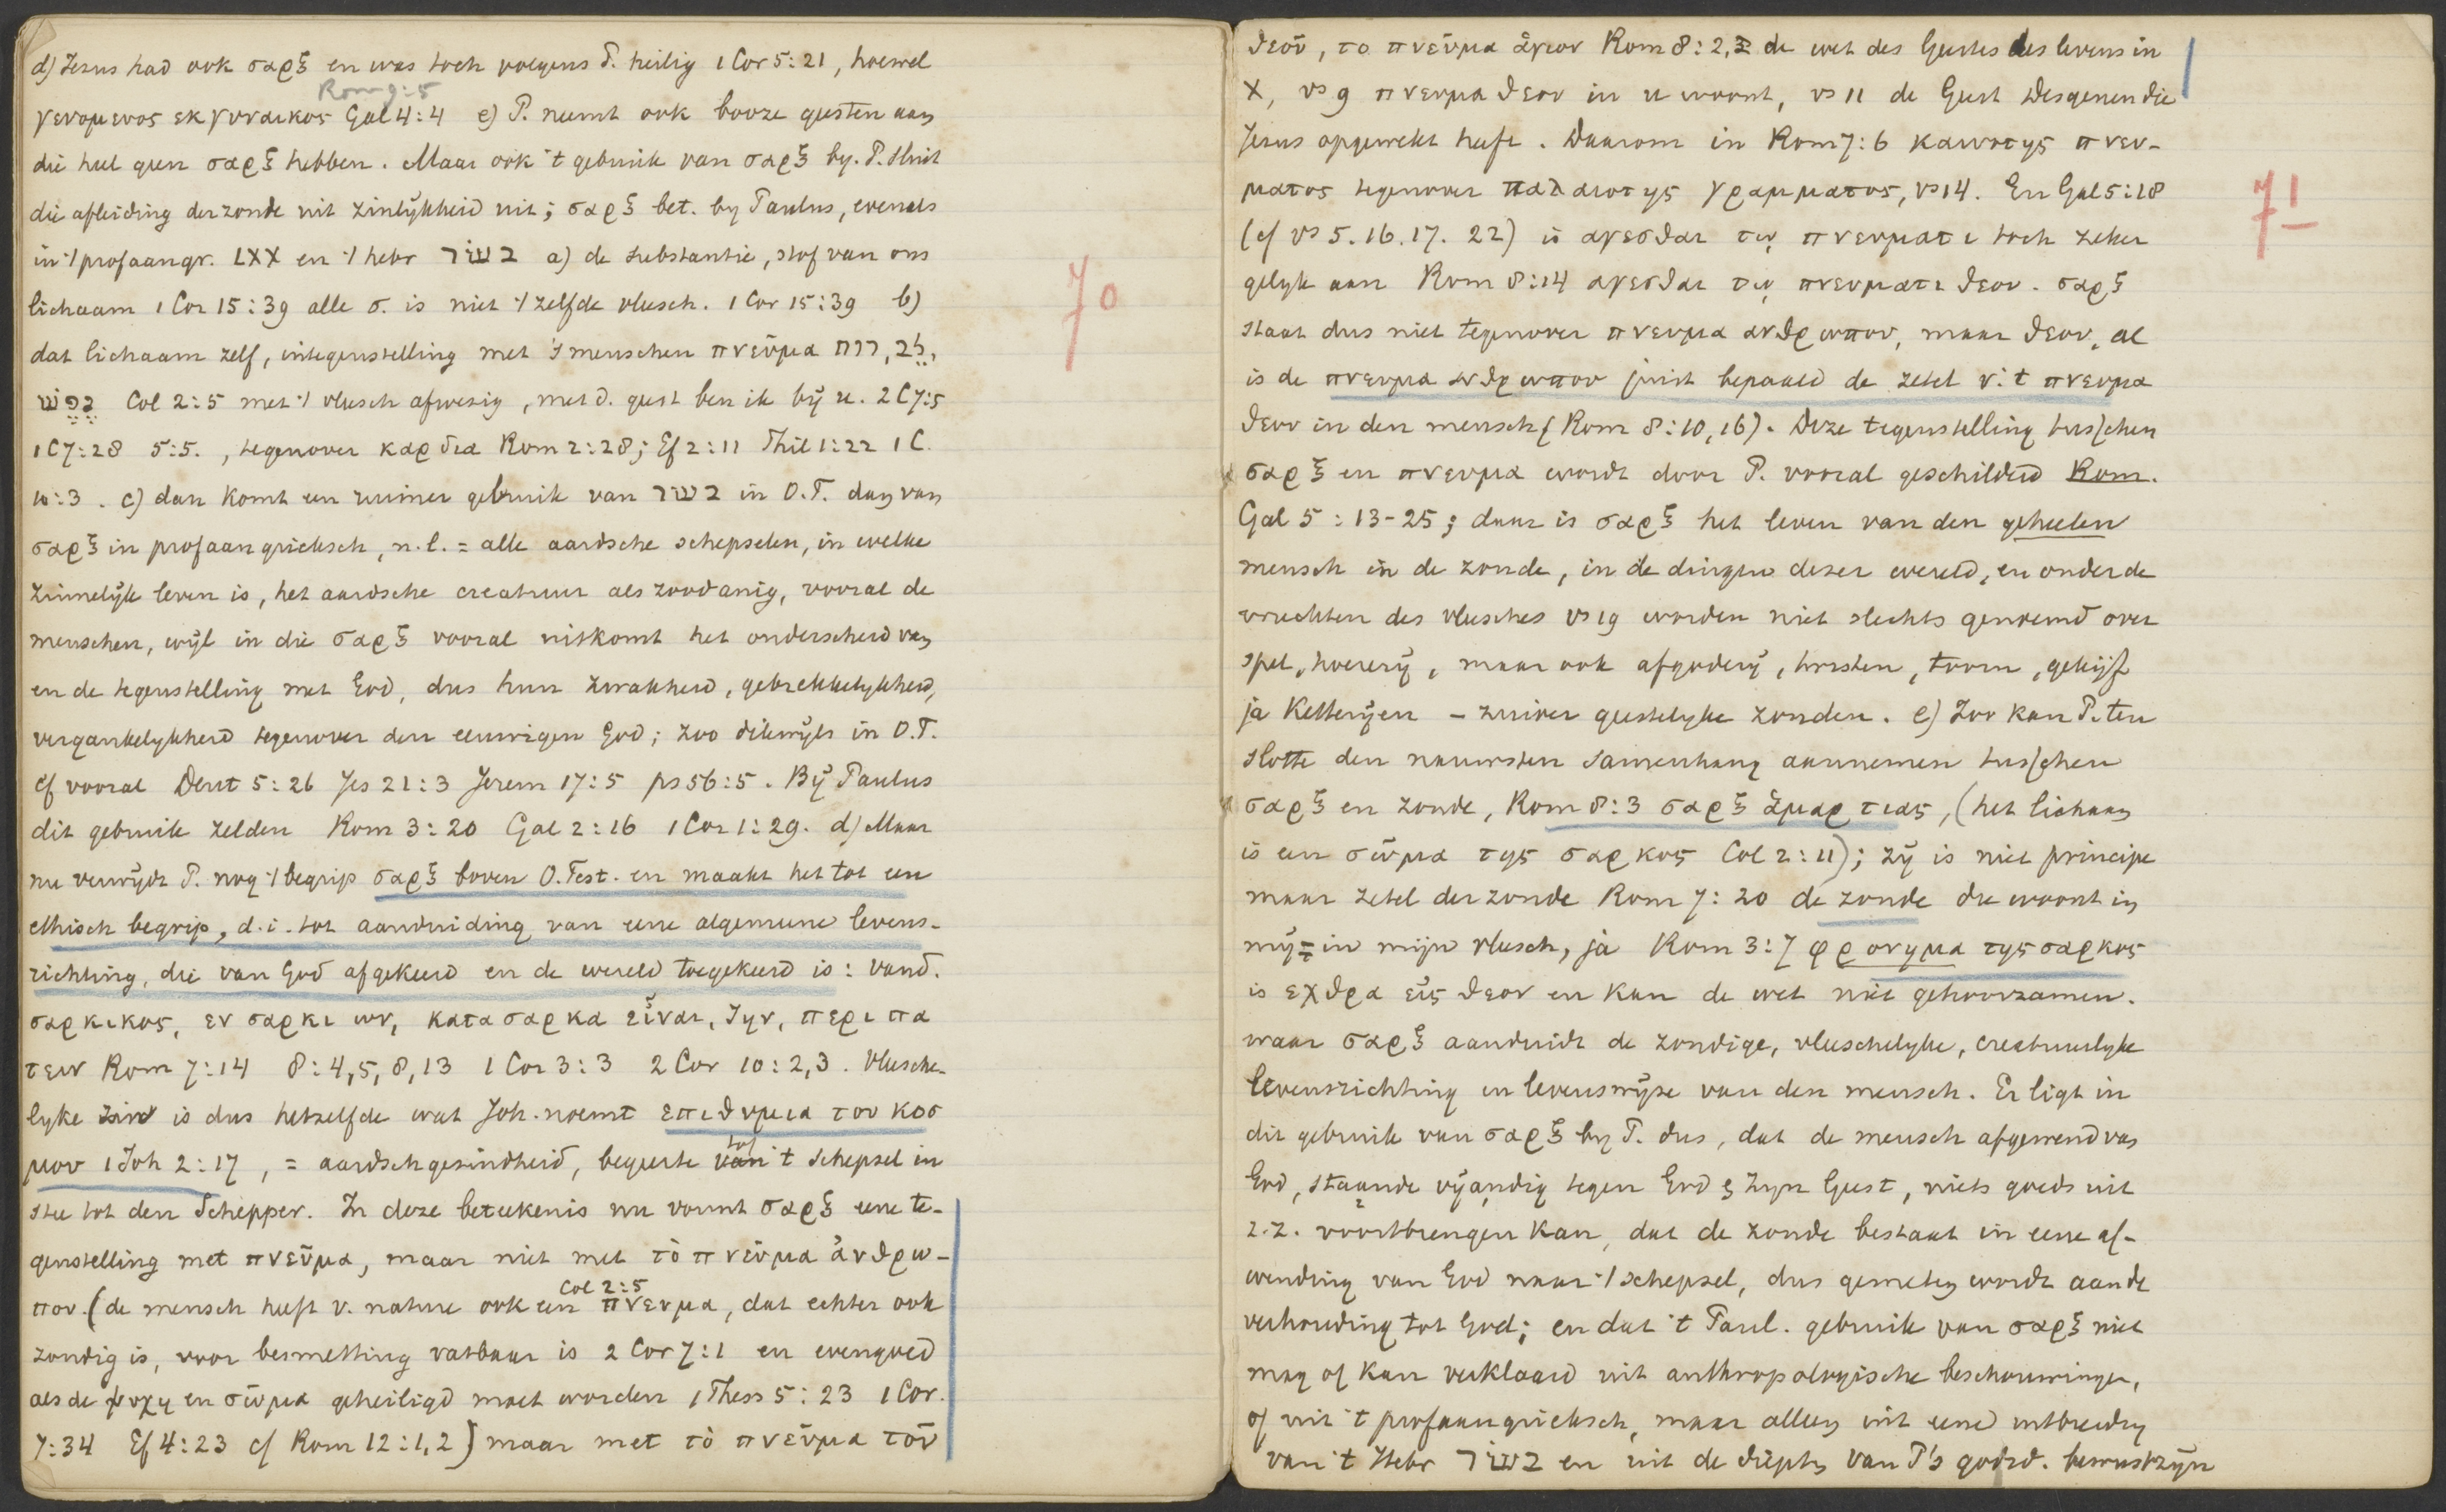 d) Jezus had ook σαρξ en was toch volgens P. heilig 1 Cor 5:21, hoewel
Rom 9:5
γενομενος εκ γυναικος Gal 4:4 e) P. neemt ook booze geesten aan
die heel geen σαρξ hebben. Maar ook 't gebruik van σαρξ by. P. sluit
die afleiding der zonde uit zinlykheid uit; σαρξ bet. by Paulus, evenals
in 't profaangr. LXX en 't hebr בשׂר a) de substantie, stof van ons
lichaam 1 Cor 15:39 alle σ. is niet 't zelfde vleesch. 1 Cor 15:39 b)
dat lichaam zelf, in tegenstelling met 's menschen πνεῦμα רוח, לב,
נפשׁ Col 2:5 met 't vleesch afwezig, met d. geest ben ik bÿ u. 2 C 7:5
1 C 7:28 5:5., tegenover καρδια Rom 2:28; Ef 2:11 Phil 1:22 1 C.
10:3. c) dan komt een ruimer gebruik van בשׂר in O.T. dan van
σαρξ in profaan grieksch, n.l. = alle aardsche schepselen, in welke
zinnelÿk leven is, het aardsche creatuur als zoodanig, vooral de
menschen, wÿl in die σαρξ vooral uitkomt het onderscheid van
en de tegenstelling met God, dus hun zwakheid, gebrekkelykheid,
vergankelykheid tegenover den eeuwigen God; zoo dikwÿls in O.T.
cf vooral Deut 5:26 Jes 21:3 Jerem 17:5 ps 56:5. Bÿ Paulus
dit gebruik zelden Rom 3:20 Gal 2:16 1 Cor 1:29. d) Maar
nu verwÿdt P. nog 't begrip σαρξ boven O. Test. en maakt het tot een
ethisch begrip, d.i. tot aanduiding van eene algemeene levens-
richting, die van God afgekeerd en de wereld toegekeerd is: vand.
σαρκικος, εν σαρκι ων, κατα σαρκα εἶναι, ζην, περιπα
τειν Rom 7:14 8:4,5,8,13 1 Cor 3:3 2 Cor 10:2,3. Vleesche-
lyke zin is dus hetzelfde wat Joh. noemt επιθυμια του κοσ
μου 1 Joh 2:17, = aardschgezindheid, begeerte van tot 't schepsel in
stee tot den Schepper. In deze beteekenis nu vormt σαρξ eene te-
genstelling met πνεῦμα, maar niet met τὸ πνεῦμα ἀνθρω-
Col 2:5
που. (de mensch heeft v. nature ook een πνευμα, dat echter ook
zondig is, voor besmetting vatbaar is 2 Cor 7:1 en evengoed
als de ψυχη en σῶμα geheiligd moet worden 1 Thess 5:23 1 Cor.
7:34 Ef 4:23 cf Rom 12:1,2) maar met τὸ πνεῦμα τοῦ
70
θεοῦ, το πνεῦμα ἅγιον Rom 8:2, de wet des Geestes des levens in
X, vs 9 πνευμα θεου in u woont, vs 11 de Geest desgenen die
Jezus opgewekt heeft. Daarom in Rom 7:6 καινοτης πνευ-
ματος tegenover παλαιοτης γραμματος, vs 14. En Gal 5:18
(cf vs 5.16.17. 22) is αγεσθαι τῳ πνευματι toch zeker
gelyk aan Rom 8:14 αγεσθαι τῳ πνευματι θεου. σαρξ
staat dus niet tegenover πνευμα ανθρωπου, maar θεου, al
is de πνευμα ανθρωπου juist bepaald de zetel v. 't πνευμα
θεου in den mensch (Rom 8:10,16). Deze tegenstelling tusschen
σαρξ en πνευμα wordt door P. vooral geschilderd Rom.
Gal 5:13-25; daar is σαρξ het leven van den geheelen
mensch in de zonde, in de dingen dezer wereld, en onder de
vruchten des vleesches vs 19 worden niet slechts genoemd over
spel, hoererÿ, maar ook afgoderÿ, twisten, toorn, gekÿf
ja ketterÿen – zuiver geestelyke zonden. e) Zoo kan P. ten
slotte den nauwsten samenhang aannemen tusschen
σαρξ en zonde, Rom 8:3 σαρξ ἁμαρτιας, (het lichaam
is een σῶμα της σαρκος Col 2:11); zÿ is niet principe
maar zetel der zonde Rom 7:20 de zonde die woont in
mÿ = in mijn vleesch, ja Rom 3:7 φρονημα της σαρκος
is εχθρα εἰς θεον en kan de wet niet gehoorzamen.
waar σαρξ aanduidt de zondige, vleeschelyke, creatuurlyke
levensrichting en levenswÿze van den mensch. Er ligt in
dit gebruik van σαρξ by P. dus, dat de mensch afgewend van
God, staande vÿandig tegen God & Zyn Geest, niets goeds uit
z.z. voortbrengen kan, dat de zonde bestaat in eene af-
wending van God naar 't schepsel, dus gemeten wordt aan de
verhouding tot God; en dat 't Paul. gebruik van σαρξ niet
mag of kan verklaard uit anthropologische beschouwingen,
of uit 't profaangrieksch, maar alleen uit eene uitbreiding
van 't Hebr בשׂר en uit de diepte van P's godsd. bewustzÿn
71